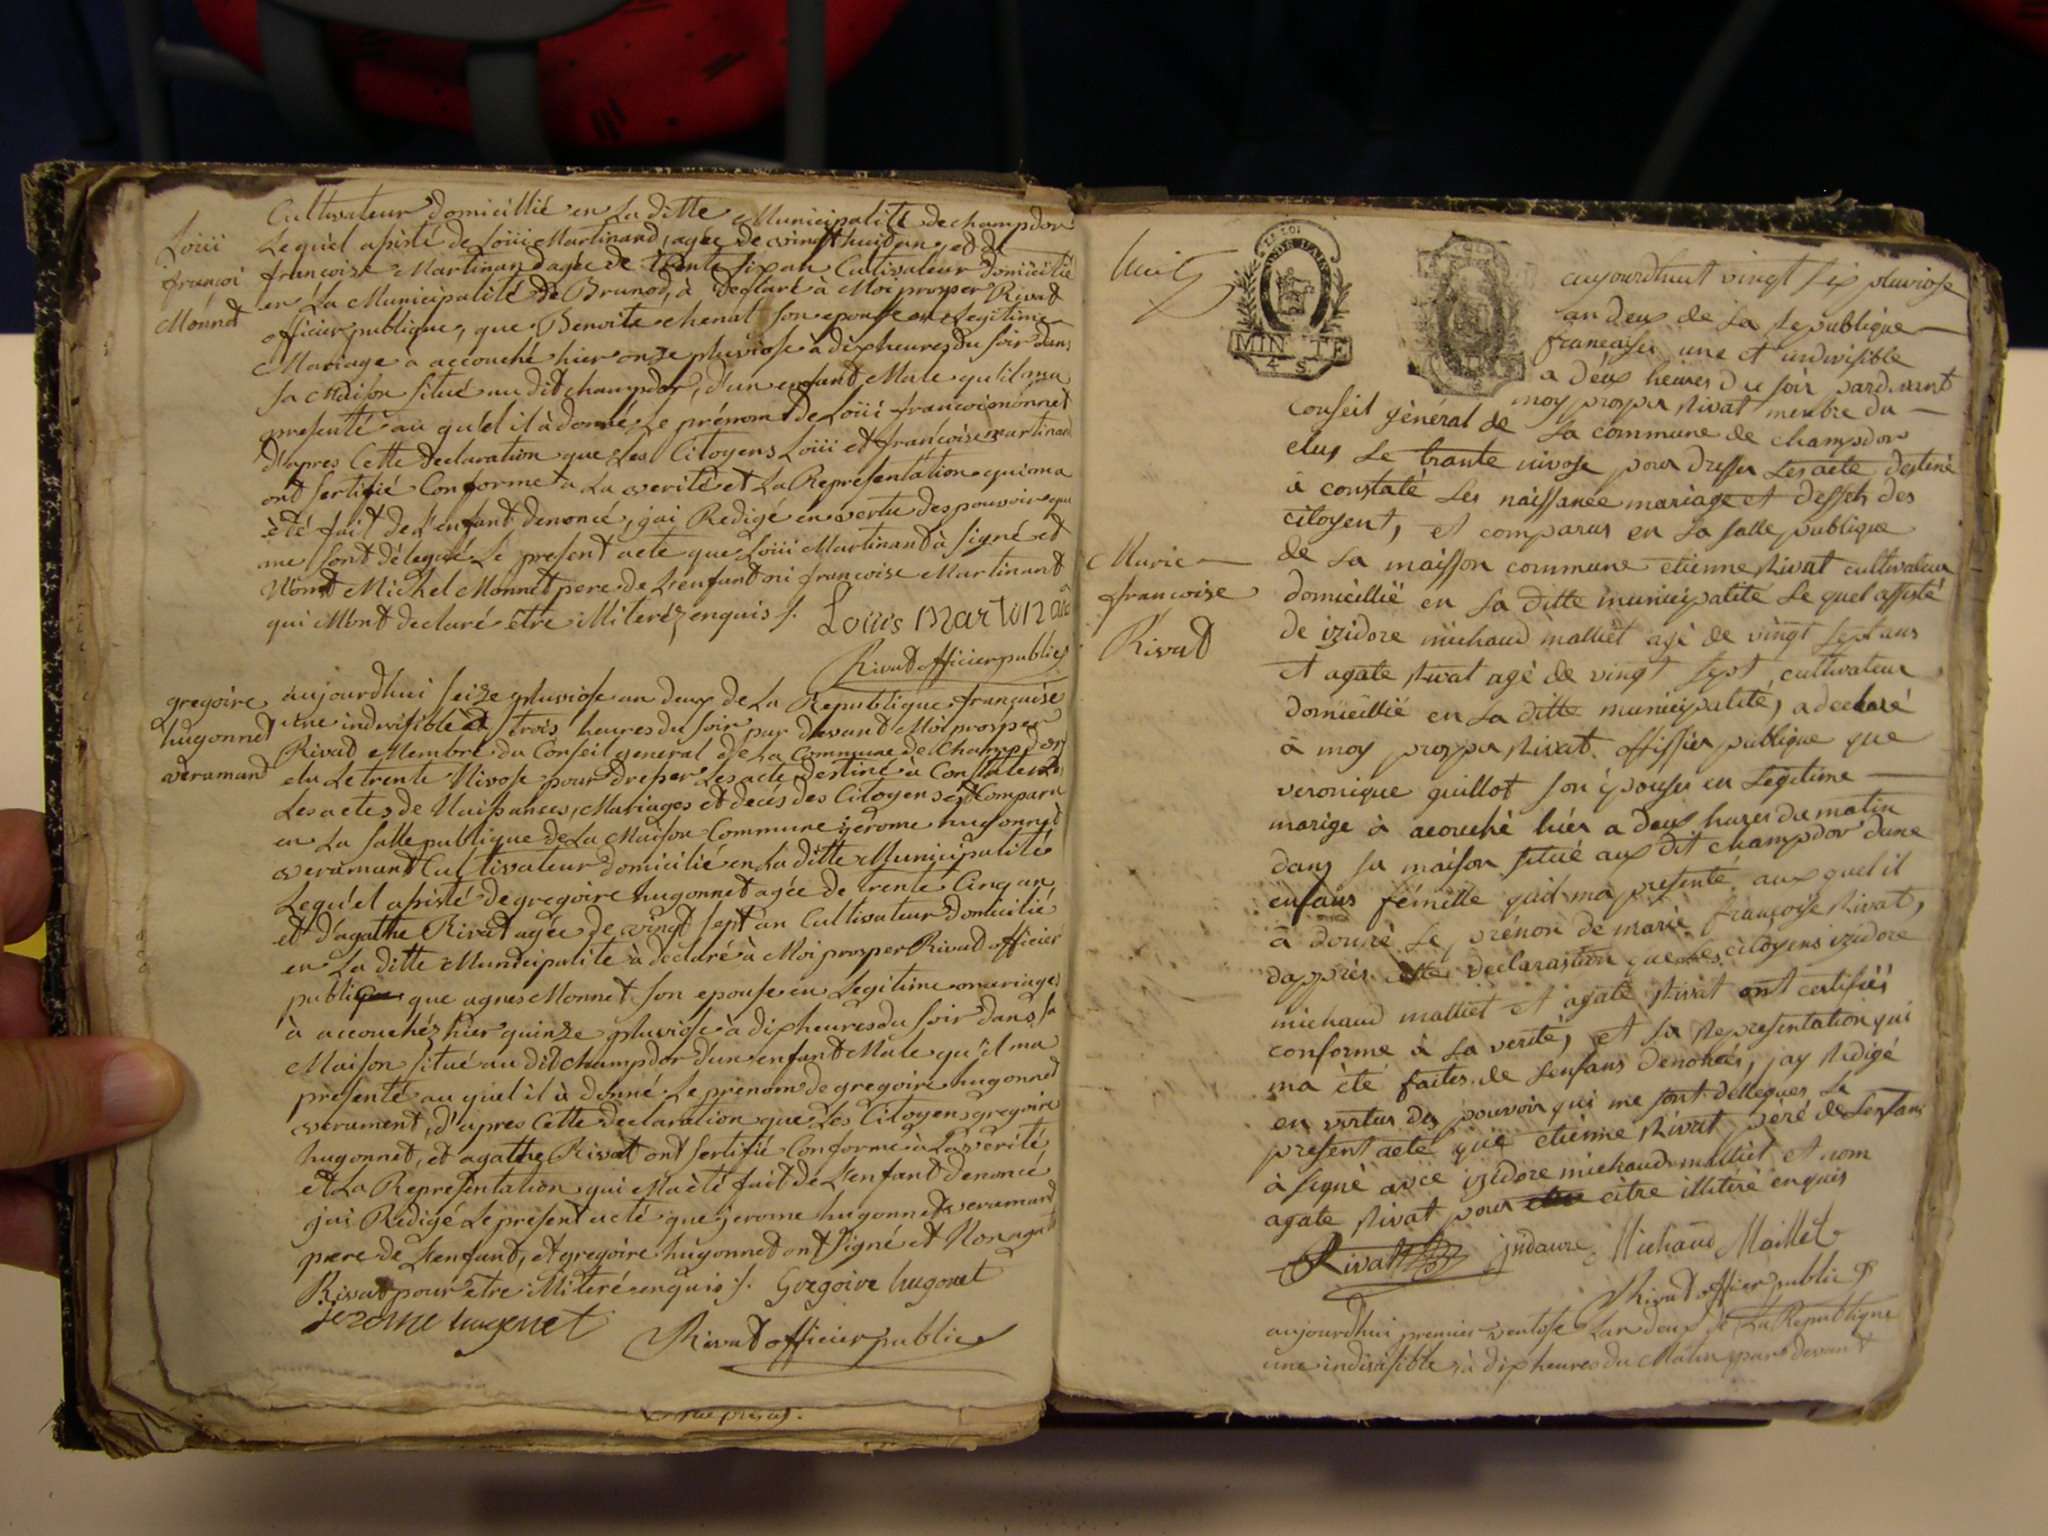 Loüi
françoi
Monnet
Cultivateur domicillié en La ditte Municipalité de champdor
Lequ'el asisté de Loüii Martinand, agée de vingt huit an, et de
francoise Martinand agée de trente six an Cultivateur domicilié
en La Municipalité de Brunod, à declaré à Moi prosper Rivat
officier publique, que Benoite chenal son epouse en Legitime
Mariage à accouché hier onze pluviose à dix heures du soir dans
sa Maison situé au dit champdor, d'un enfant Male qu'il ma
presenté au qu'el il à donné Le prénom de Loüi françoi monnet
d'apres Cette declaration que Les Citoyens Loüii et françoise martinand
ont sertifié Conforme à La verité et La Representation qui ma
èté fait de L'enfant denoncé, j'ai Redigé en vertu des pouvoir qui
me sont délegué Le present acte que Loüii Martinant à signé et
Non Michel Monnet pere de L'enfant ni francoise Martinant
qui Mont declaré etre illiteréz enquis /. Loüis Martinand
Rivat officier public
gregoire
hugonnet
veramand
aujourdhui seize pluviose an deux de La Republique française
une indivisible à trois heures du soir par devant Moi prosper
Rivat Membre du Conseil general de La Commune de Champdor
elu Le trente Nivose pour dresser Les acte destiné à Constater
Les actes de Naissances, Mariages et decés des Citoyens est Comparu
en La salle publique de La Maison Commune jerome hugonnet
veramant Cultivateur domicilié en La ditte Municipalité
Lequ'el asisté de gregoire hugonnet agée de trente Cinq an,
et d'agathe Rivat agée de vingt sept an Cultivateur domicilié
en La ditte Municipalite à declaré à Moi prosper Rivat officier
publique que agnes Monnet son epouse en Legitime mariage
à accouchéz hier quinze pluviose à dix heures du soir dans sa
Maison situé au dit champdor d'un enfant Male qu'il ma
presenté au qu'el il à donné Le prenom de gregoire hugonnet
verament, d'apres Cette declaration que Les Citoyens gregoire
hugonnet, et agathe Rivat ont sertifié Conforme à La verité
et La Representation qui Ma èté fait de L'enfant denoncé
j'ai Redigé Le present acté que jerome hugonnet veramand
pere de L'enfant, et gregoire hugonnet ont signé et Non agath
Rivat pour etre illiteré enquis /. Gregoire hugonet
jerome hugonet
Rivat officier public
huit
LA LOI
MIN TE
4 S
aujourdhuit vingt six pluviose
an deux de La republique
françayse une et indivisible
a deux heures du soir pardevant
moy prosper Rivat membre du
conseil général de La commune de champdor
elus Le trante nivose pour dresser Les acte destiné
à constaté Les naissanée mariage et desses des
citoyent, et comparus en La salle publique
de La maisson commune etienne Rivat cultivateur
Marie
francoise
Rivat
domicillié en La ditte municipalité Le quel assisté
de izidore michaud malliet agé de vingt sept ans
et agate Rivat agé de vingt sept cultivateur
domicillié en La ditte municipalité, a declaré
à moy prosper Rivat offissier publique que
veronique guillot son épouse en Légitime
marige à acouché hiér a deux hures du matin
dans sa maison situé aux dit champdor dune
enfans fémelle quil ma presenté aux quel il
à donné Le prénon de marie françoise Rivat,
dapprés cette declarastion que Les citoyens izidore
michaud malliet et agate Rivat ont certifiés
conforme à La verité, et La Representation qui
ma été faites de Lenfans denoncés, jay Redigé
en vertus des pouvoir qui me sont dellegués Le
present acte que etienne Rivat péré de Lenfans
à signé avce izidore michaud malliet et nom
agate Rivat pour citre illitéré enquis
Rivat Michaud Maillet
Rivat officier public
aujourdhui premier ventose Lan deux de La Republique
une indivisible, à dix heures du Matin par devant